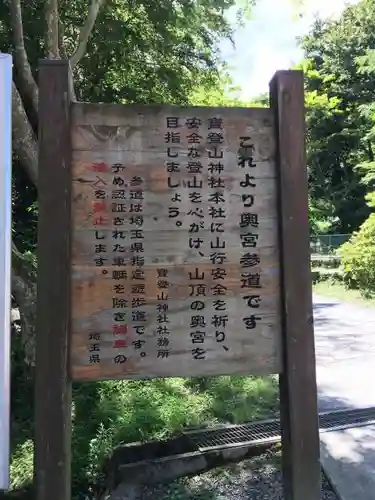 これより奥宮参道です
寳登山神社本社に山行安全を祈り、
安全な登山を心がけ、山頂の奥宮を
目指しましょう。
寳登山神社社務所
参道は埼玉県指定遊歩道です。
予め認証された車輌を除き諸車の
進入を禁止します。
埼玉県